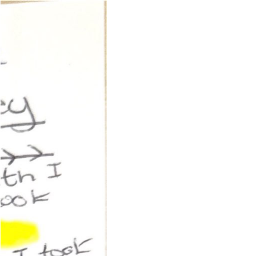 th I
ook
I took